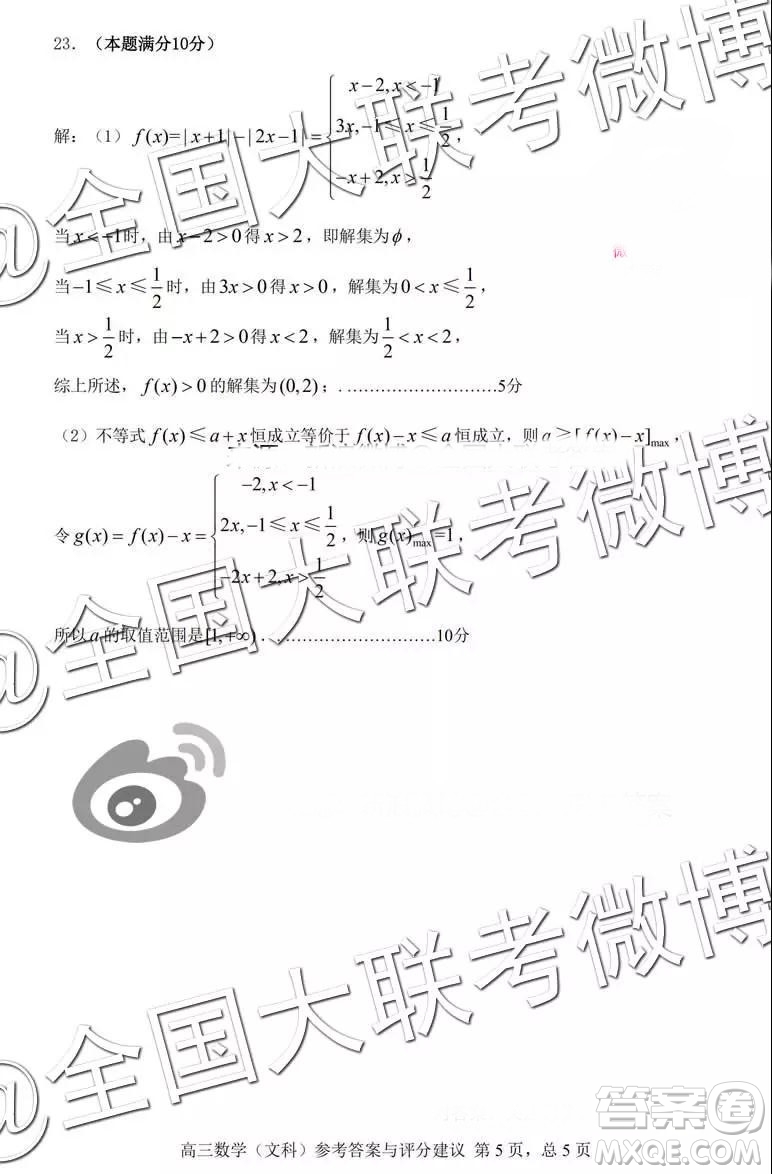 23. （本题满分10分）
解：（1） f(x)=|x+1|-|2x-1|= { x-2, x<-1
3x, -1≤x≤1/2 ，
-x+2, x>1/2
当x<-1时，由x-2>0得x>2，即解集为ϕ，
当-1≤x≤1/2时，由3x>0得x>0，解集为0<x≤1/2，
当x>1/2时，由-x+2>0得x<2，解集为1/2<x<2，
综上所述， f(x)>0的解集为(0,2)；. ………………………5分
（2）不等式f(x)≤a+x恒成立等价于f(x)-x≤a恒成立，则a≥[f(x)-x]max ，
令g(x)=f(x)-x= { -2, x<-1
2x, -1≤x≤1/2 ，则g(x)max=1，
-2x+2, x>1/2
所以a的取值范围是[1,+∞) . ………………………10分
@全国大联考微博
@全国大联考微博
@全国大联考微博
答案卷
高三数学（文科）参考答案与评分建议 第 5 页，总 5 页